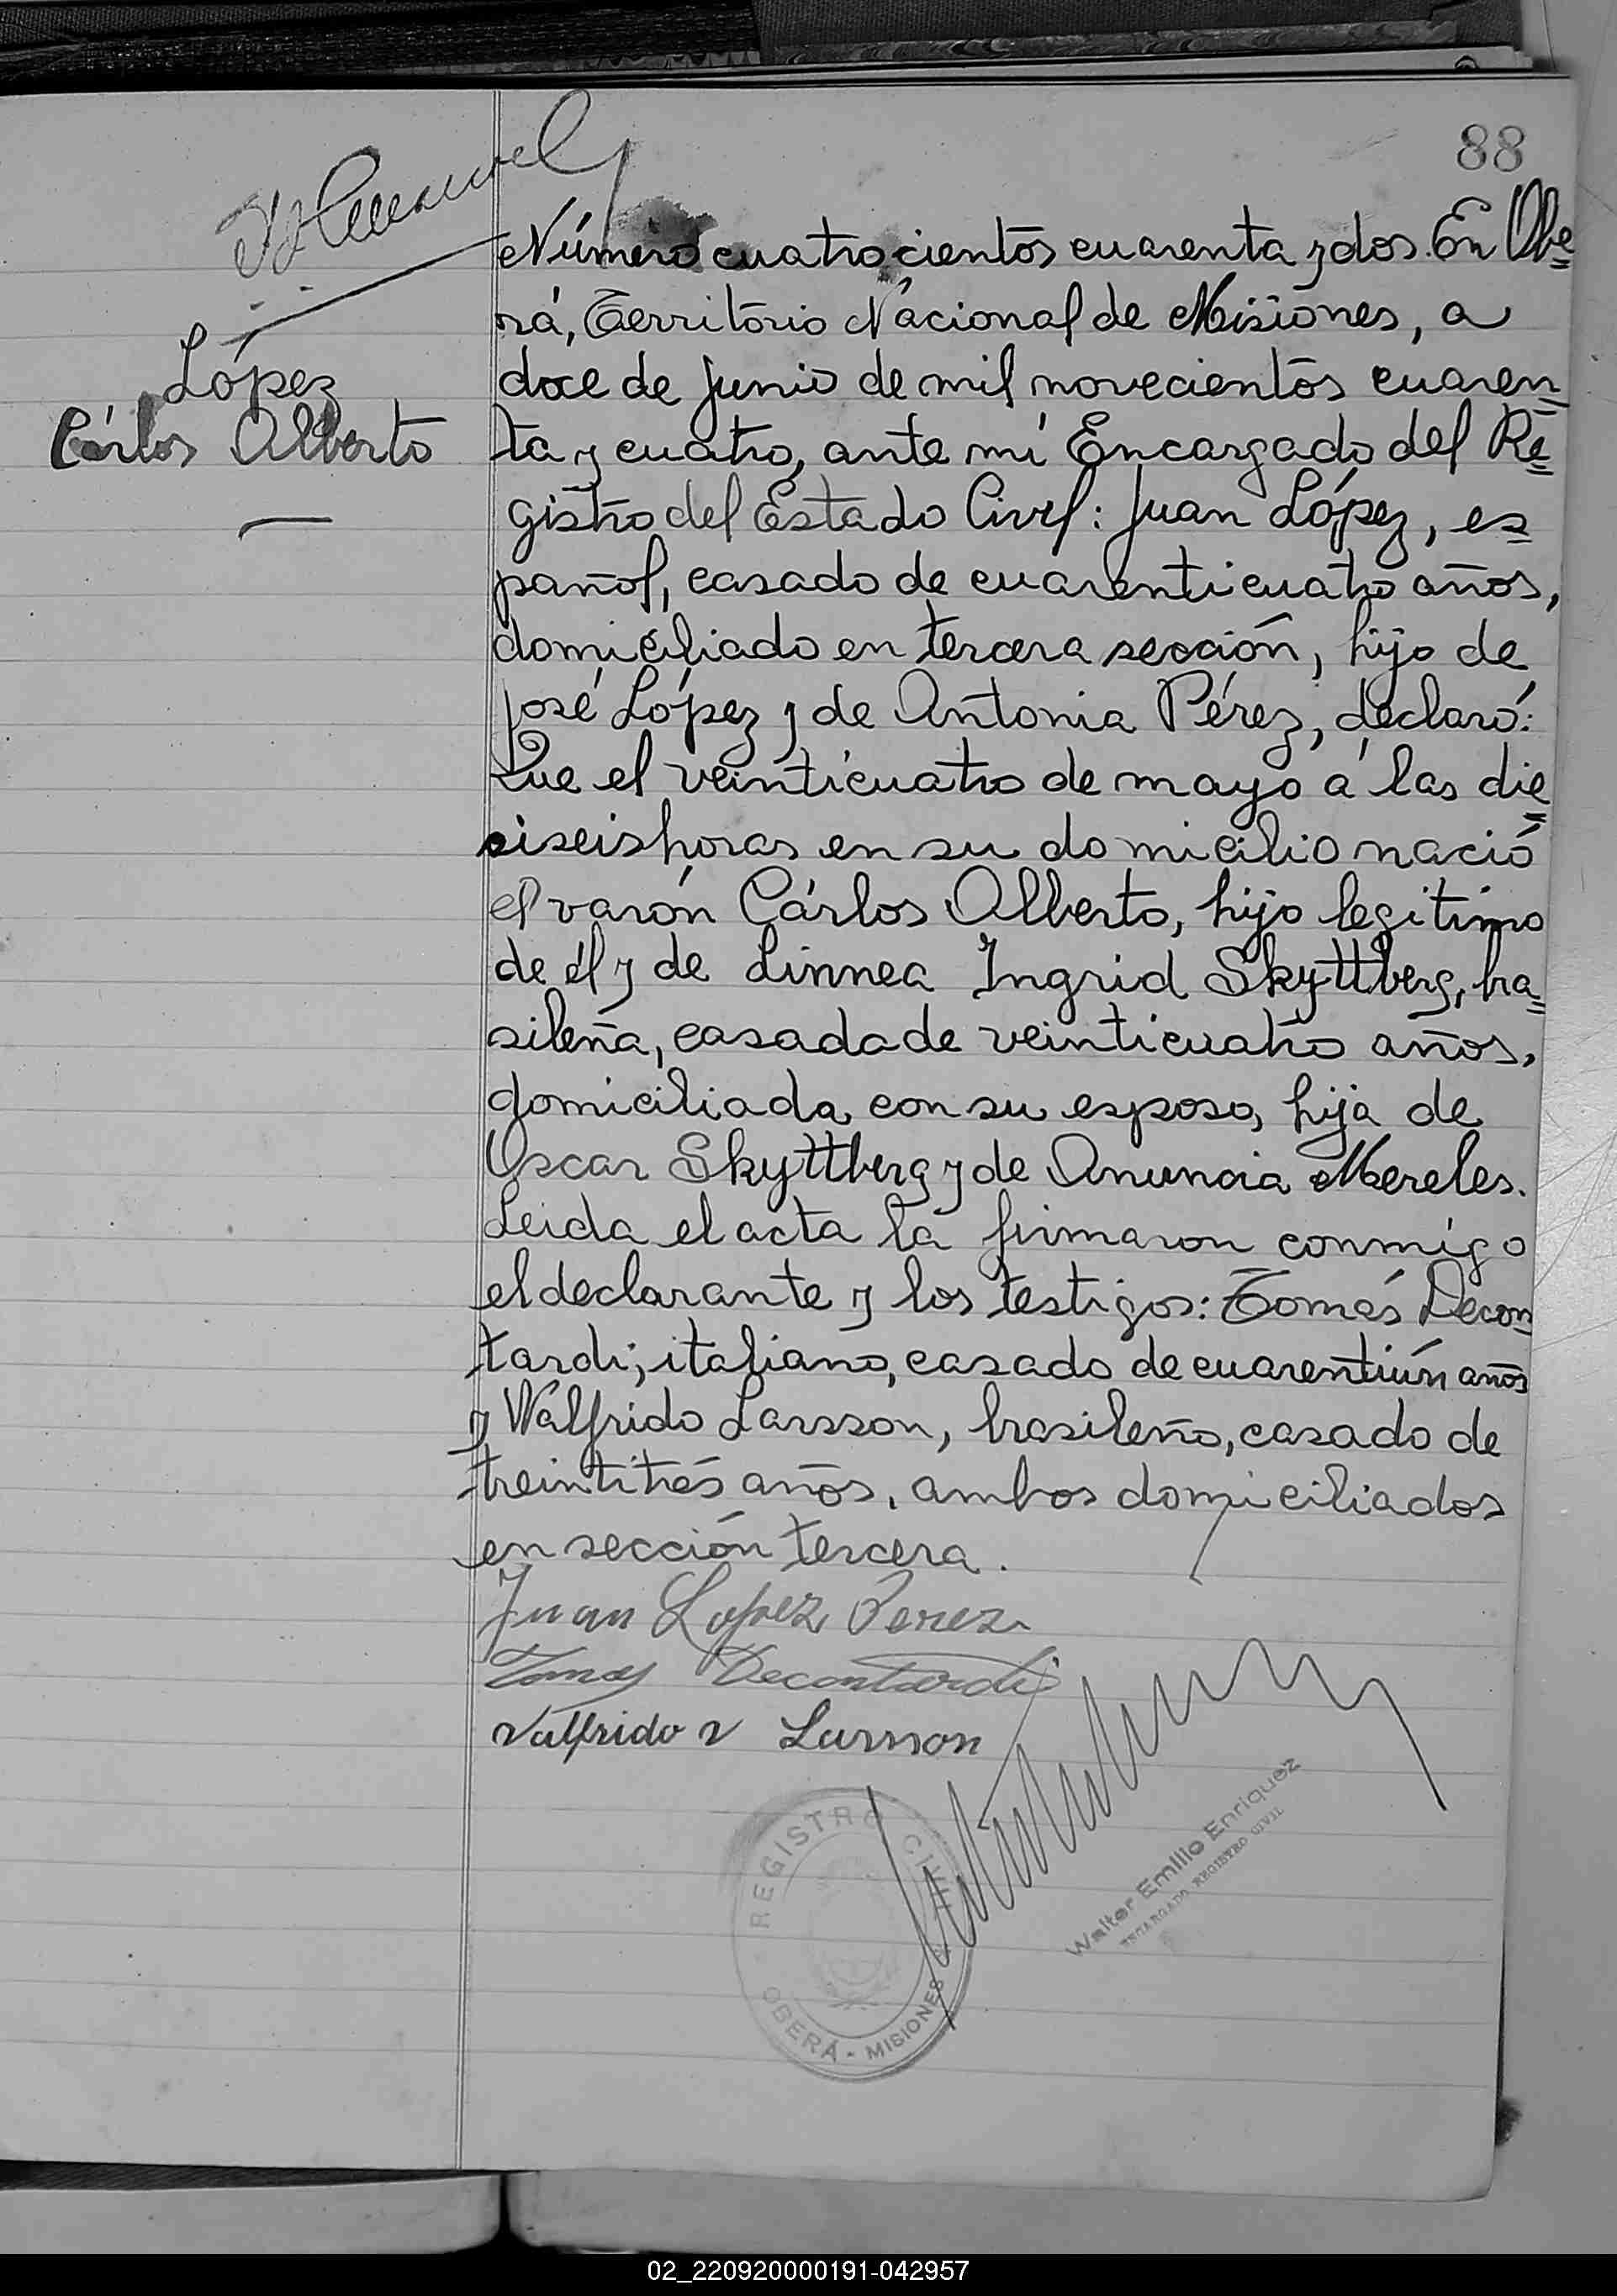 88
López
Cárlos Alberto
Número cuatrocientos cuarenta y dos. En Obe=
rá, Territorio Nacional de Misiones, a
doce de junio de mil novecientos cuaren=
ta y cuatro, ante mí Encargado del Re=
gistro del Estado Civil: Juan López, es=
pañol, casado de cuarenticuatro años,
domiciliado en tercera sección, hijo de
José López y de Antonia Pérez, declaró:
Que el veinticuatro de mayo a las die=
ciseis horas en su domicilio nació
el varón Cárlos Alberto, hijo legitimo
de él y de Linnea Ingrid Skyttberg, bra=
sileña, casada de veinticuatro años,
domiciliada con su esposo, hija de
Oscar Skyttberg y de Anuncia Mereles.
Leida el acta la firmaron conmigo
el declarante y los testigos: Tomás Decon=
tardi; italiano, casado de cuarentiún años
y Walfrido Larsson, brasileño, casado de
treintitrés años, ambos domiciliados
en sección tercera.
Juan Lopez Perez
Tomas Decontardi
Valfrido V Larsson
REGISTRO CIVIL
OBERÁ - MISIONES
Walter Emilio Enriquez
ENCARGADO REGISTRO CIVIL
02_220920000191-042957